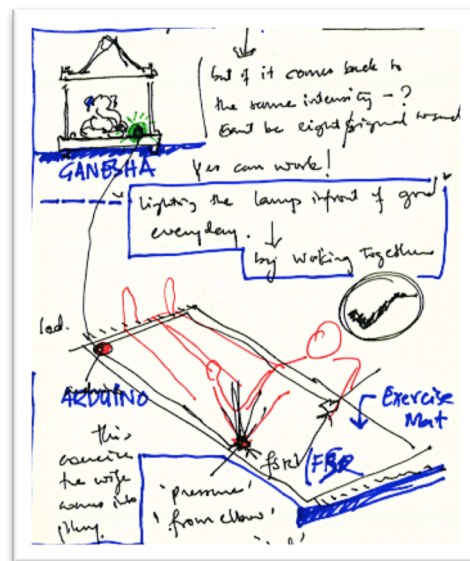 but if it comes back to
the same intensity - ?
be eight signal
GANESHA
Yes can work!
Lighting the lamps infront of god
everyday.
by working together
led.
ARDUINO
Exercise
Mat
this
exercise
the wife
comes into
play.
fsr1
FSR
'pressure'
from elbow'